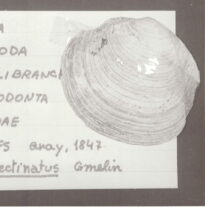 A
ODA
LIBRANCH
ODONTA
AE
FS Gray, 1847
ectinatus Gmelin